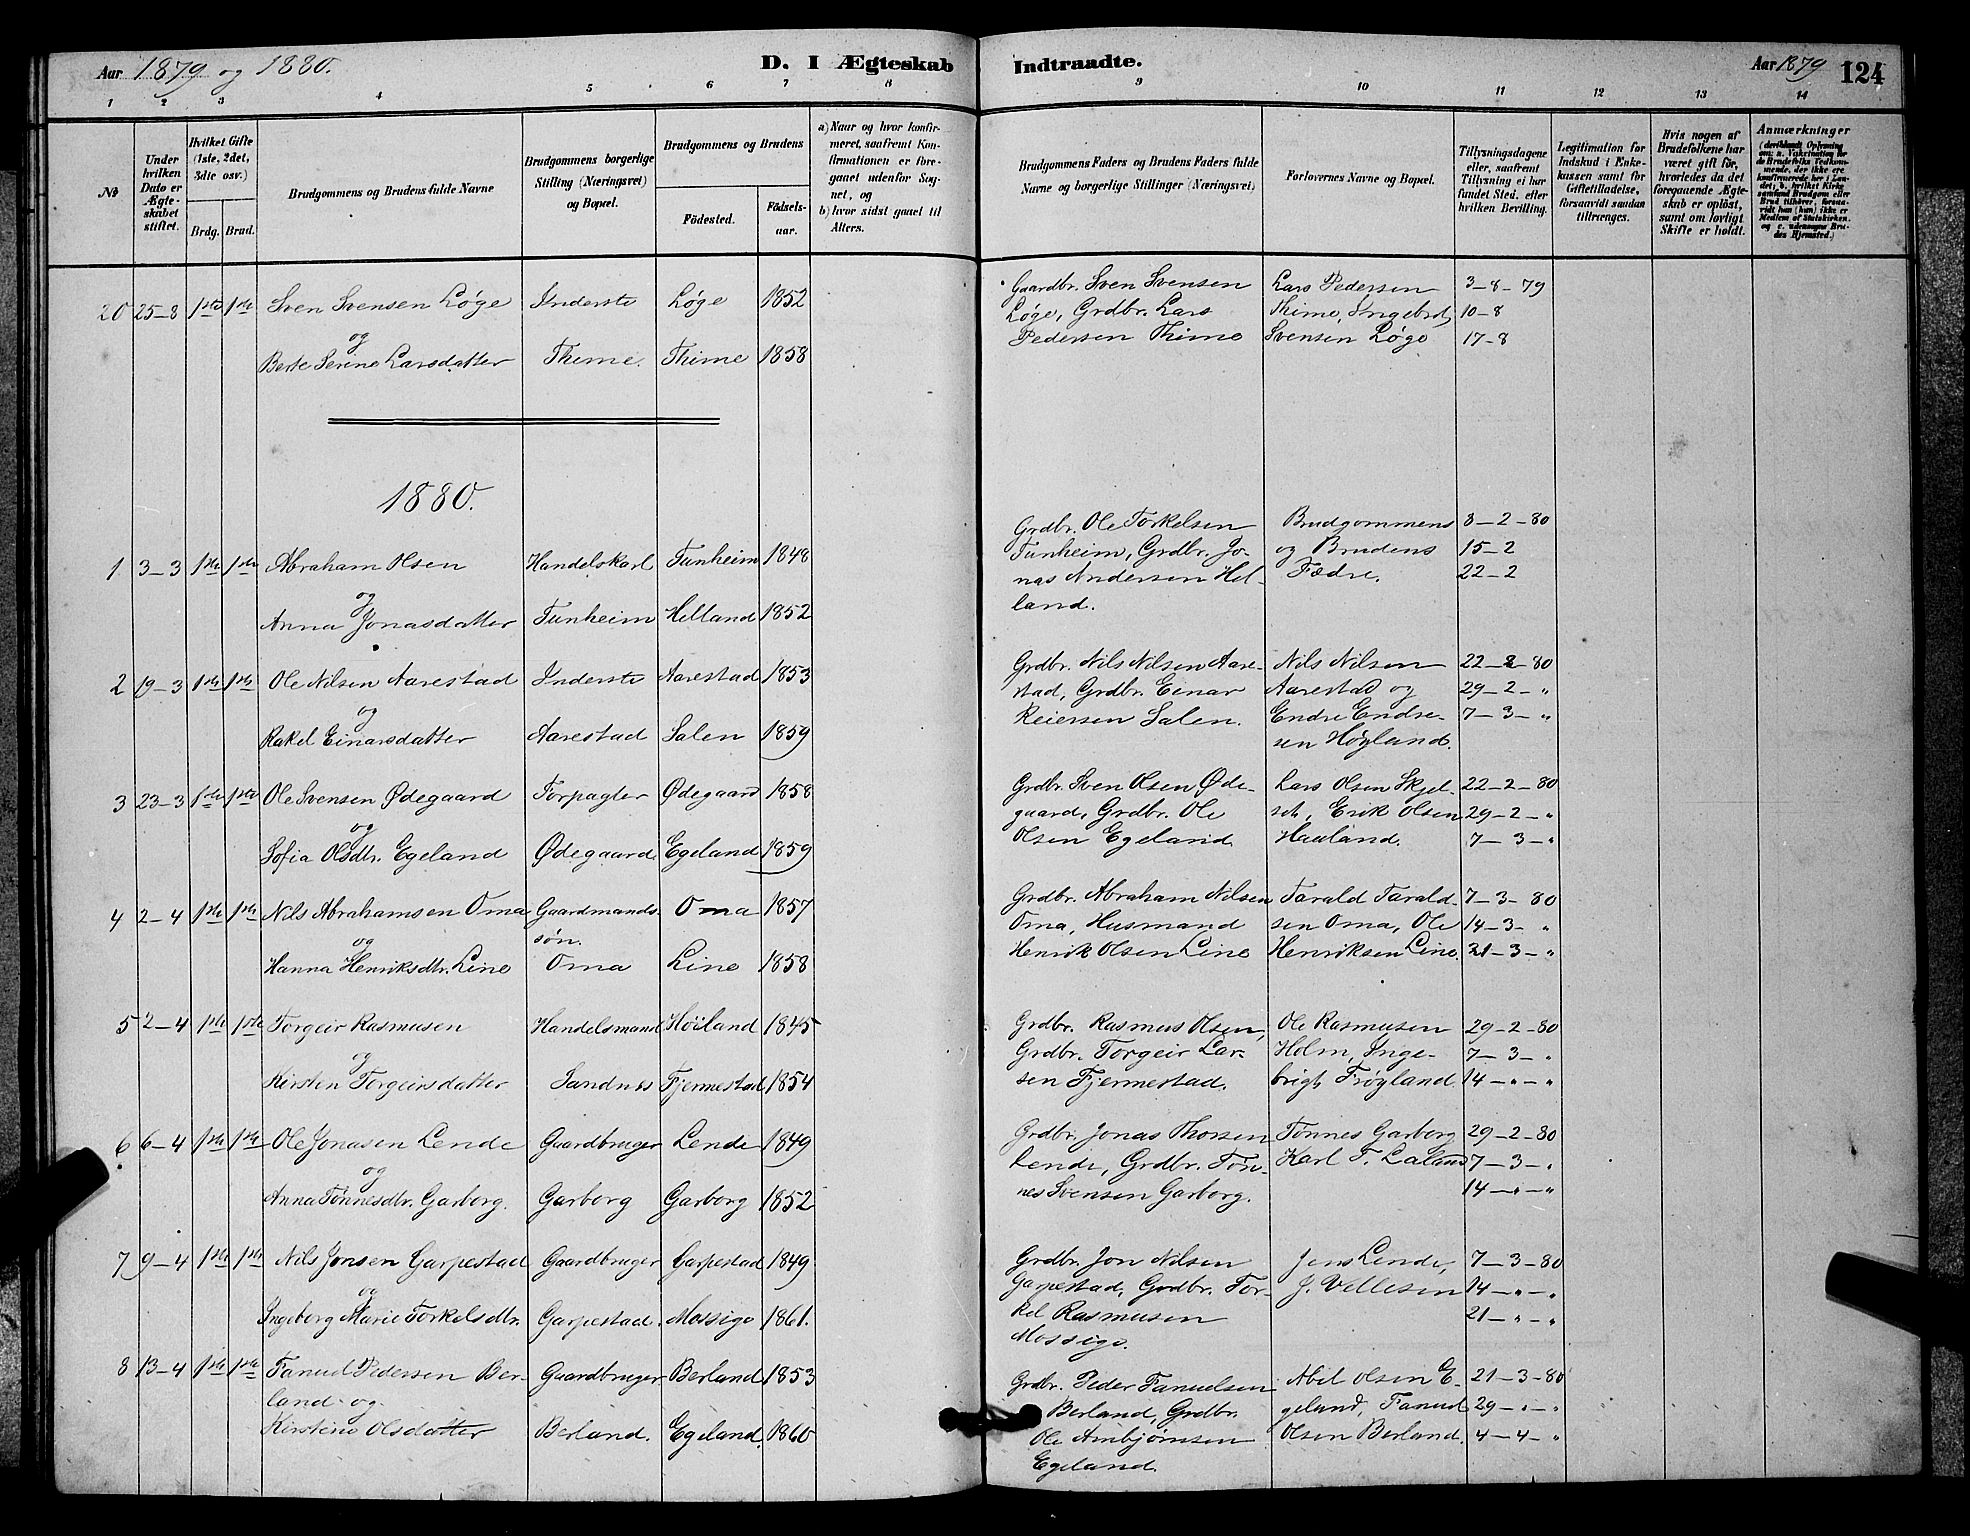 Aar 1879 og 1880.
D. I Ægteskab Indtraadte.
Aar 1879
124
1 2 3 4 5 6 7 8 9 10 11 12 13 14
No
Under hvilken Dato er Ægteskabet stiftet.
Hvilket Gifte (1ste, 2det, 3die osv.)
Brdg. Brud.
Brudgommens og Brudens fulde Navne
Brudgommens borgerlige Stilling (Næringsvei) og Bopæl.
Brudgommens og Brudens
Fødested.
Fødsels-aar.
a) Naar og hvor konfirmeret, saafremt Konfirmationen er foregaaet udenfor Sognet, og
b) hvor sidst gaaet til Alters.
Brudgommens Faders og Brudens Faders fulde Navne og borgerlige Stillinger (Næringsvei)
Forlovernes Navne og Bopæl.
Tillysningsdagene eller, saafremt Tillysning ei har fundet Sted, efter hvilken Bevilling.
Legitimation for Indskud i Enkekassen samt for Giftetilladelse, forsaavidt saadan tiltrænges.
Hvis nogen af Brudefolkene har været gift før, hvorledes da det foregaaende Ægteskab er opløst, samt om lovligt Skifte er holdt.
Anmærkninger
20 25-8 1ste 1ste Sven Svensen Løge Inderste Løge 1852
og
Berte Serine Larsdatter Thime. Thime 1858
Gaardbr. Sven Svensen Lars Pedersen 3-8-79
Løge, Grdbr. Lars Thime, Ingebrt, 10-8
Pedersen Thime Svensen Løge 17-8
1880.
1 3-3 1ste 1ste Abraham Olsen Handelskarl Tunheim 1848
og
Anna Jonasdatter Tunheim Helland 1852
Grdbr. Ole Torkelsen Brudgommens 8-2-80
Tunheim, Grdbr. Jo- og Brudens 15-2
nas Andersen Hel- Fædre. 22-2
land.
2 19-3 1ste 1ste Ole Nilsen Aarestad Inderste Aarestad 1853
og
Rakel Einarsdatter Aarestad Salen 1859
Grdbr. Nils Nilsen Aare- Nils Nilsen 22-2-80
stad, Grdbr. Einar Aarestad og 29-2-"
Reiersen Salen. Endre Endre- 7-3-"
sen Høyland.
3 23-3 1ste 1ste Ole Svensen Ødegaard Forpagter Ødegaard 1858
og
Sofia Olsdtr. Egeland Ødegaard Egeland 1859
Grdbr. Sven Olsen Øde- Lars Olsen Skjel- 22-2-80
gaard, Grdbr. Ole set, Erik Olsen 29-2-"
Olsen Egeland Haaland. 7-3-"
4 2-4 1ste 1ste Nils Abrahamsen Oma Gaardmands- Oma 1857
og søn.
Hanna Henriksdtr. Line Oma Line 1858
Grdbr. Abraham Nilsen Tarald Tarald- 7-3-80
Oma, Husmand sen Oma, Ole 14-3-"
Henrik Olsen Line Henriksen Line. 21-3-"
5 2-4 1ste 1ste Torgeir Rasmusen Handelsmand Høiland 1845
og
Kirsten Torgeirsdatter Sandnes Fjermestad 1854
Grdbr. Rasmus Olsen, Ole Rasmusen 29-2-80
Grdbr. Torgeir Lar- Holm, Inge- 7-3-"
sen Fjermestad. brigt Frøyland. 14-"-"
6 6-4 1ste 1ste Ole Jonasen Lende Gaardbruger Lende 1849
og
Anna Tønnesdtr. Garborg. Garborg Garborg 1852
Grdbr. Jonas Thorsen Tønnes Garborg 29-2-80
Lende, Grdbr. Tøn- Karl T. Laland 7-3-"
nes Svensen Garborg. 14-"-"
7 9-4 1ste 1ste Nils Jonsen Garpestad Gaardbruger Garpestad 1849
og
Ingeborg Marie Torkelsdtr. Garpestad. Mossige 1861.
Grdbr. Jon Nilsen Jens Lende, 7-3-80
Garpestad, Grdbr. Tor- J. Vellesen 14-"-"
kel Rasmusen 21-"-"
Mossige.
8 13-4 1ste 1ste Fanuel Pedersen Ber- Gaardbruger Berland 1853
land og
Kirstine Olsdatter Berland. Egeland. 1860
Grdbr. Peder Fanuelsen Abel Olsen E- 21-3-80
Berland, Grdbr. geland, Fanuel 29-"-"
Ole Arnbjørnsen Olsen Berland. 4-4-"
Egeland.